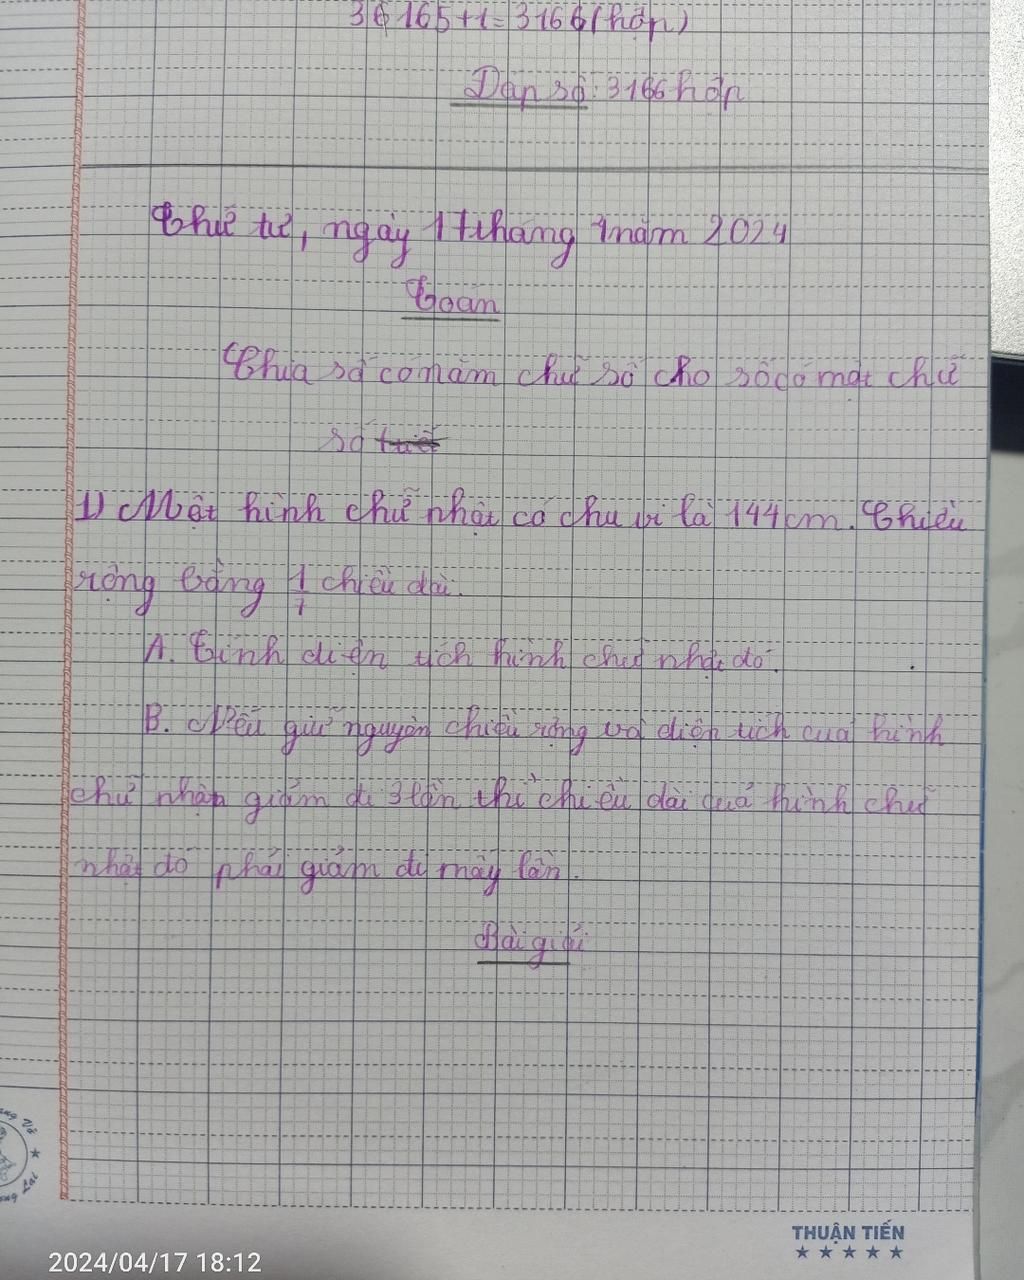 36165+1=3166(hộp)
Đáp số: 3166 hộp
Thứ tư, ngày 17 tháng 4 năm 2024
Toán
Chia số có năm chữ số cho số có một chữ
số
1) Một hình chữ nhật có chu vi là 144cm. Chiều
rộng bằng 1/7 chiều dài.
A. Tính diện tích hình chữ nhật đó.
B. Nếu giữ nguyên chiều rộng và diện tích của hình
chữ nhận giảm đi 3 lần thì chiều dài quả hình chữ
nhật đó phải giảm đi mấy lần.
Bài giải
THUẬN TIẾN
2024/04/17 18:12